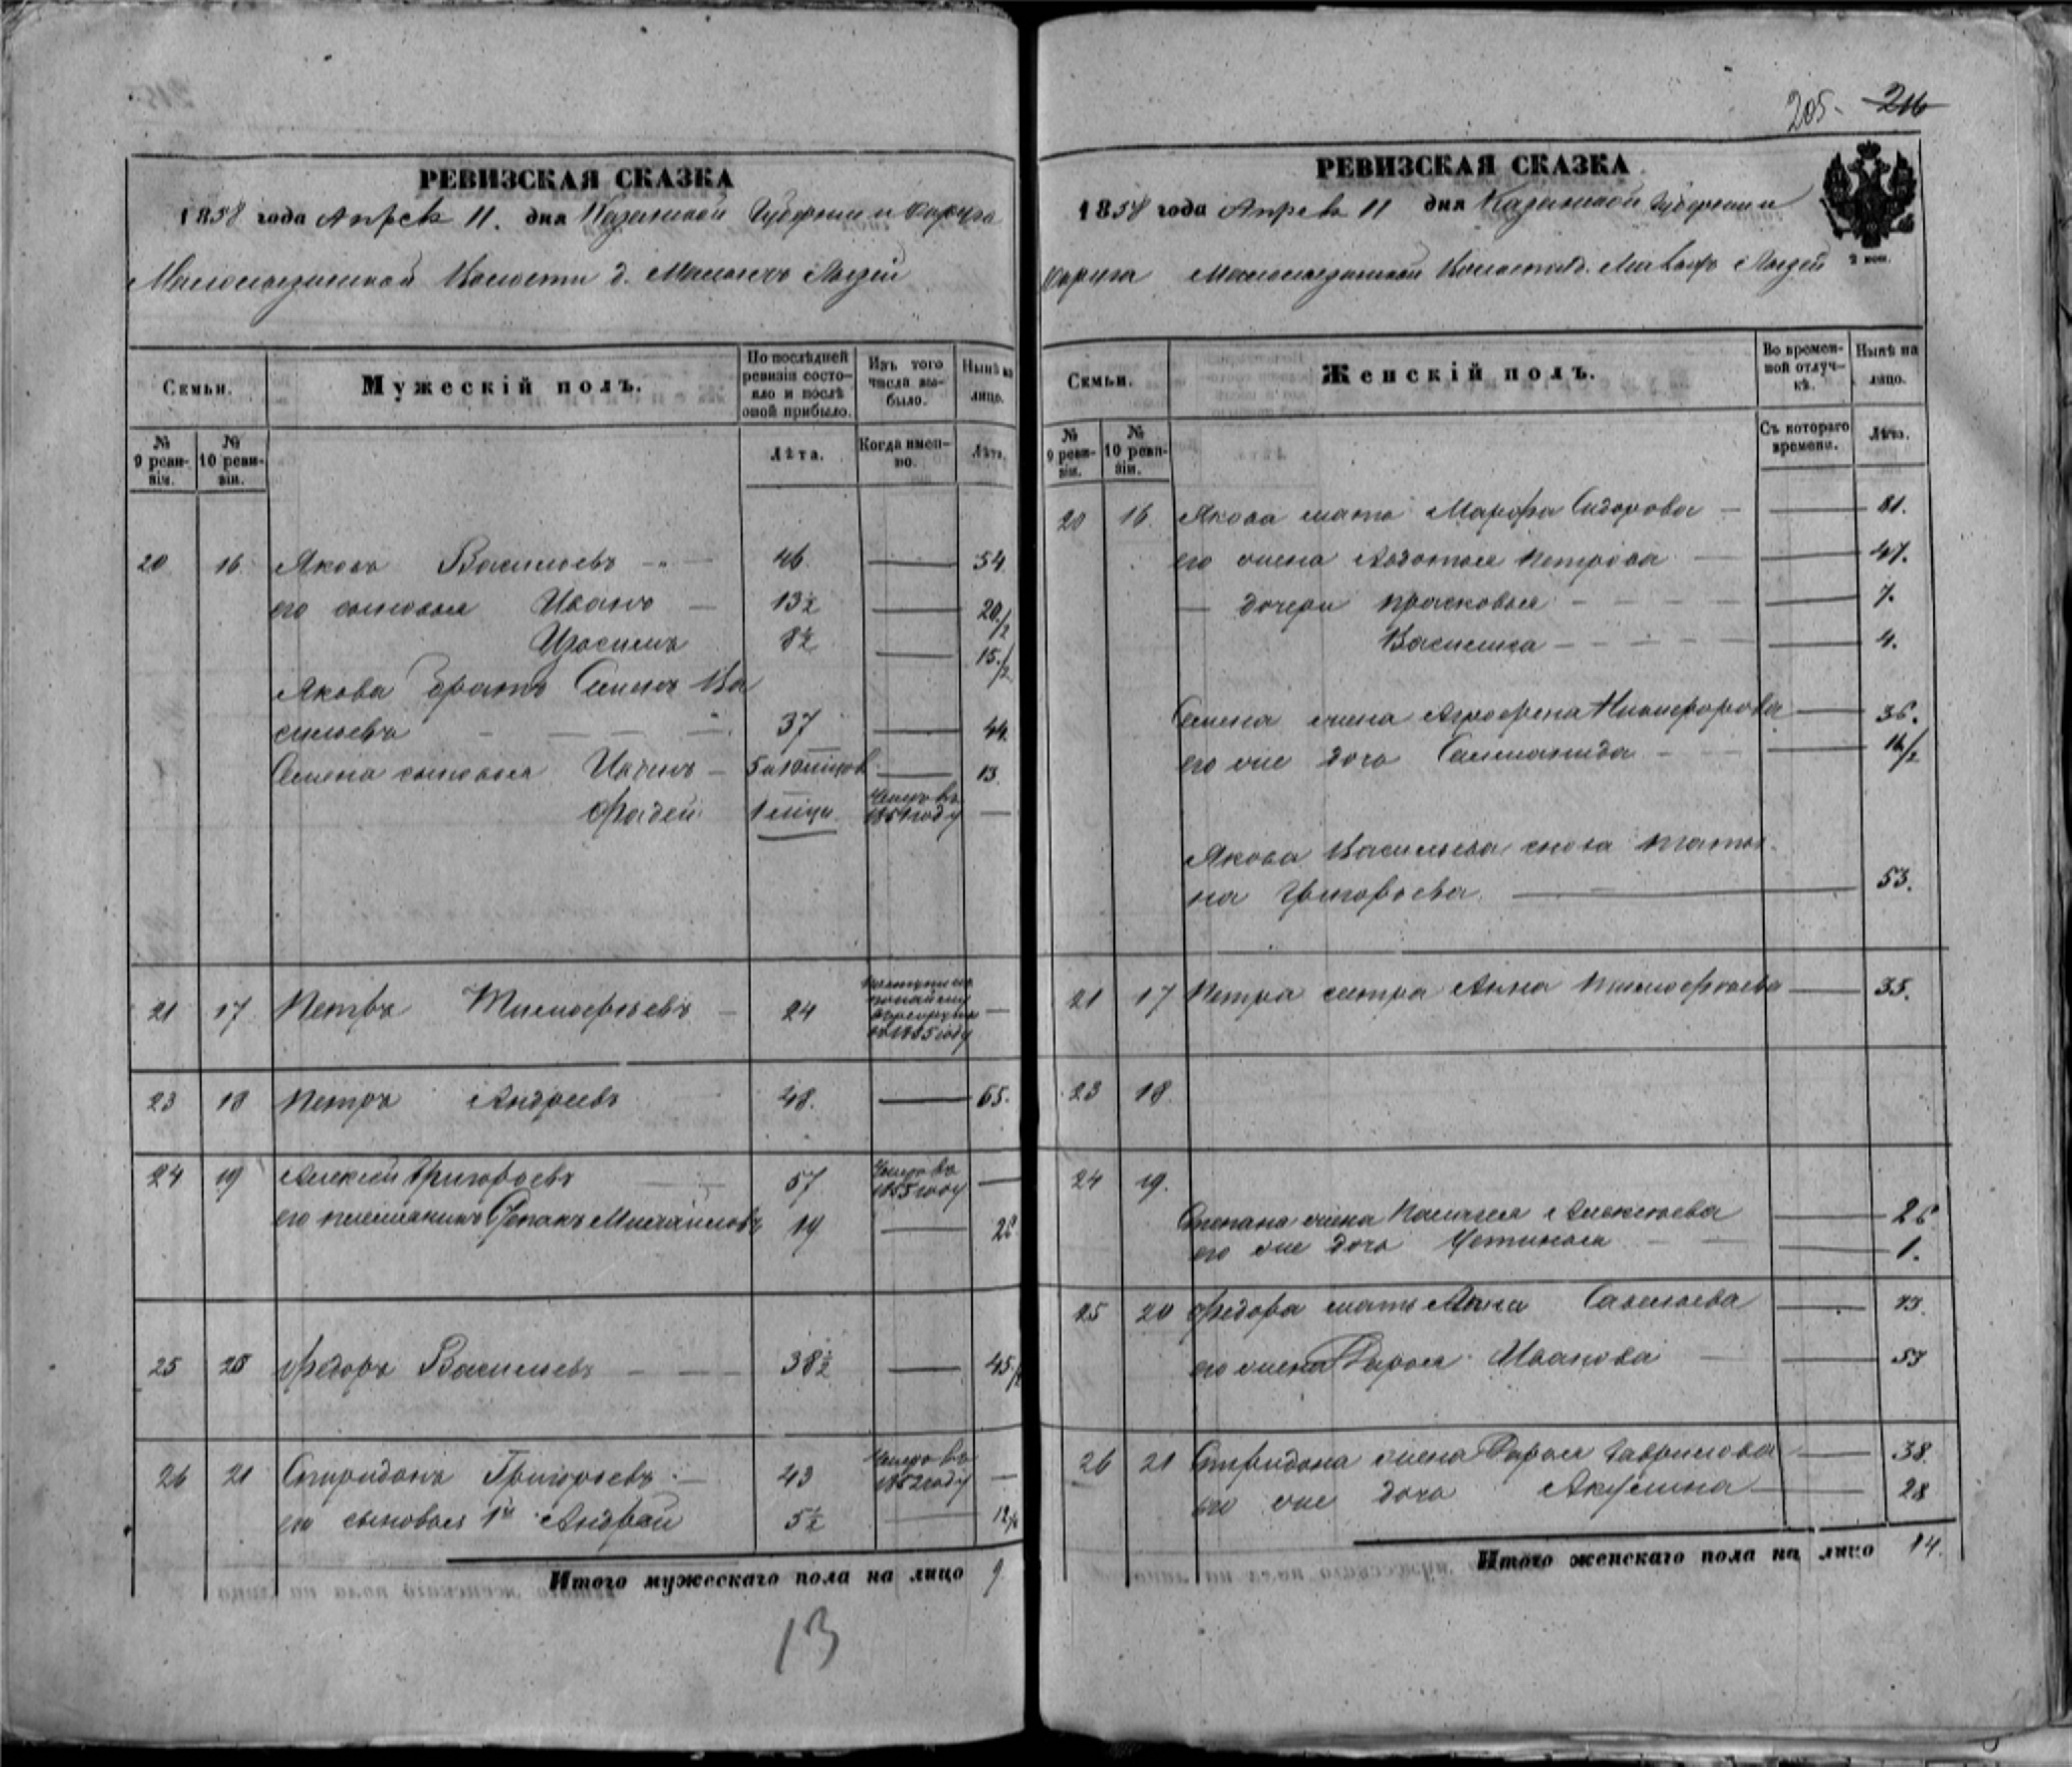 205. 216
РЕВИЗСКАЯ СКАЗКА
1858 года Апреля 11. дня Казанской Губернии и Округа
Волости д. Людей
Семьи.
Мужескій полъ.
По послѣдней ревизіи состояло и послѣ оной прибыло.
Изъ того числа выбыло.
Нынѣ на лицо.
№ 9 ревизіи.
№ 10 ревизіи.
Лѣта.
Когда именно.
Лѣта.
20 16 Яковъ Васильевъ 46 54
его сыновья Иванъ 13½ 20½
8½ 15½
Якова братъ Семенъ Ва
сильевъ 37 44
Семена сыновья 5 и 10 13
Фадей 1 Умеръ въ 1851 году
21 17 Петръ Тимофеевъ 24 году
23 18 Петръ Андреевъ 48. 65.
24 19 Алексей Григорьевъ 57 Умеръ въ 1855 году
его племянникъ Степанъ Михайловъ 19 26
25 20 Федоръ Васильевъ 38½ 45½
26 21 Спиридонъ Григорьевъ 43 Умеръ въ 1852 году
его сыновья 1й Андрей 5½ 12½
Итого мужескаго пола на лицо 9
13
РЕВИЗСКАЯ СКАЗКА
1858 года Апреля 11 дня Казанской Губернии и
2 коп.
Округа Волости д. Людей
Семьи.
Женскій полъ.
Во временной отлучкѣ.
Нынѣ на лицо.
№ 9 ревизіи.
№ 10 ревизіи.
Съ котораго времени.
Лѣта.
20 16. Якова мать Марфа Сидорова 81.
его жена Авдотья Петрова 47.
дочери Прасковья 7.
Василиса 4.
Семена жена Агрофена Никифорова 36.
его же дочь
Якова Васильева сноха Татья
на Григорьева 53.
21 17 Петра сестра Анна Тимофеева 35.
23 18.
24 19.
Степана жена Палагея Алексеева 26
его же дочь Устинья 1.
25 20 Федора мать Анна Савельева 73.
его жена Дарья Иванова
26 21 Спиридона жена Дарья Гаврилова 38.
его же дочь Акулина 28
Итого женскаго пола на лицо 14.